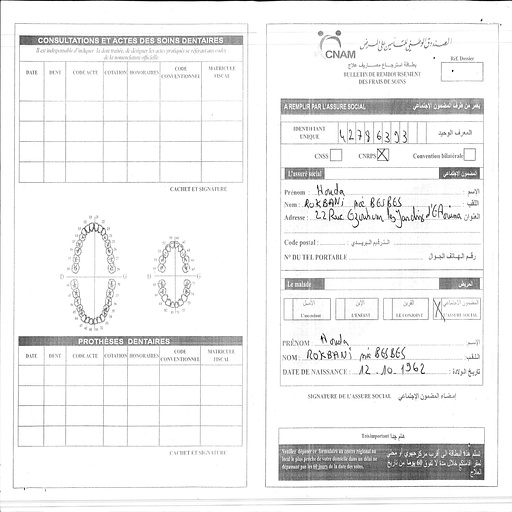 CONSULTATIONS ET ACTES DES SOINS DENTAIRES
Il est indispensable d'indiquer la dent traitée, de désigner les actes pratiqués se référant aux codes
de la nomenclature officielle
DATE DENT CODE ACTE COTATION HONORAIRES CODE CONVENTIONNEL MATRICULE FISCAL
CACHET ET SIGNATURE
D G D G
PROTHÈSES DENTAIRES
DATE DENT CODE ACTE COTATION HONORAIRES CODE CONVENTIONNEL MATRICULE FISCAL
CACHET ET SIGNATURE
الصندوق الوطني للتأمين على المرض
CNAM
بطاقة استرجاع مصاريف علاج
BULLETIN DE REMBOURSEMENT
DES FRAIS DE SOINS
Réf. Dossier
A REMPLIR PAR L'ASSURE SOCIAL يعمر من طرف المضمون الاجتماعي
IDENTIFIANT UNIQUE 42786393 المعرف الوحيد
CNSS CNRPS X Convention bilatérale
L'assuré social المضمون الاجتماعي
Prénom : Houda الاسم :
Nom : ROKBANI née BESBES اللقب :
Adresse : 22 Rue les Jardins d'El Aouina العنوان
Code postal : الترقيم البريدي :
N° DU TEL PORTABLE رقم الهاتف الجوال :
Le malade المريض
الأصل L'Ascendant
الإبن L'ENFANT
القرين LE CONJOINT
المضمون الاجتماعي L'ASSURE SOCIAL X
PRÉNOM : Houda الاسم
NOM : ROKBANI née BESBES اللقب :
DATE DE NAISSANCE : 12.10.1962 تاريخ الولادة :
SIGNATURE DE L'ASSURE SOCIAL إمضاء المضمون الاجتماعي
Très important هام جدا
Veuillez déposer ce formulaire au centre régional ou
local le plus proche de votre domicile dans un délai ne
dépassant pas les 60 jours de la date des soins.